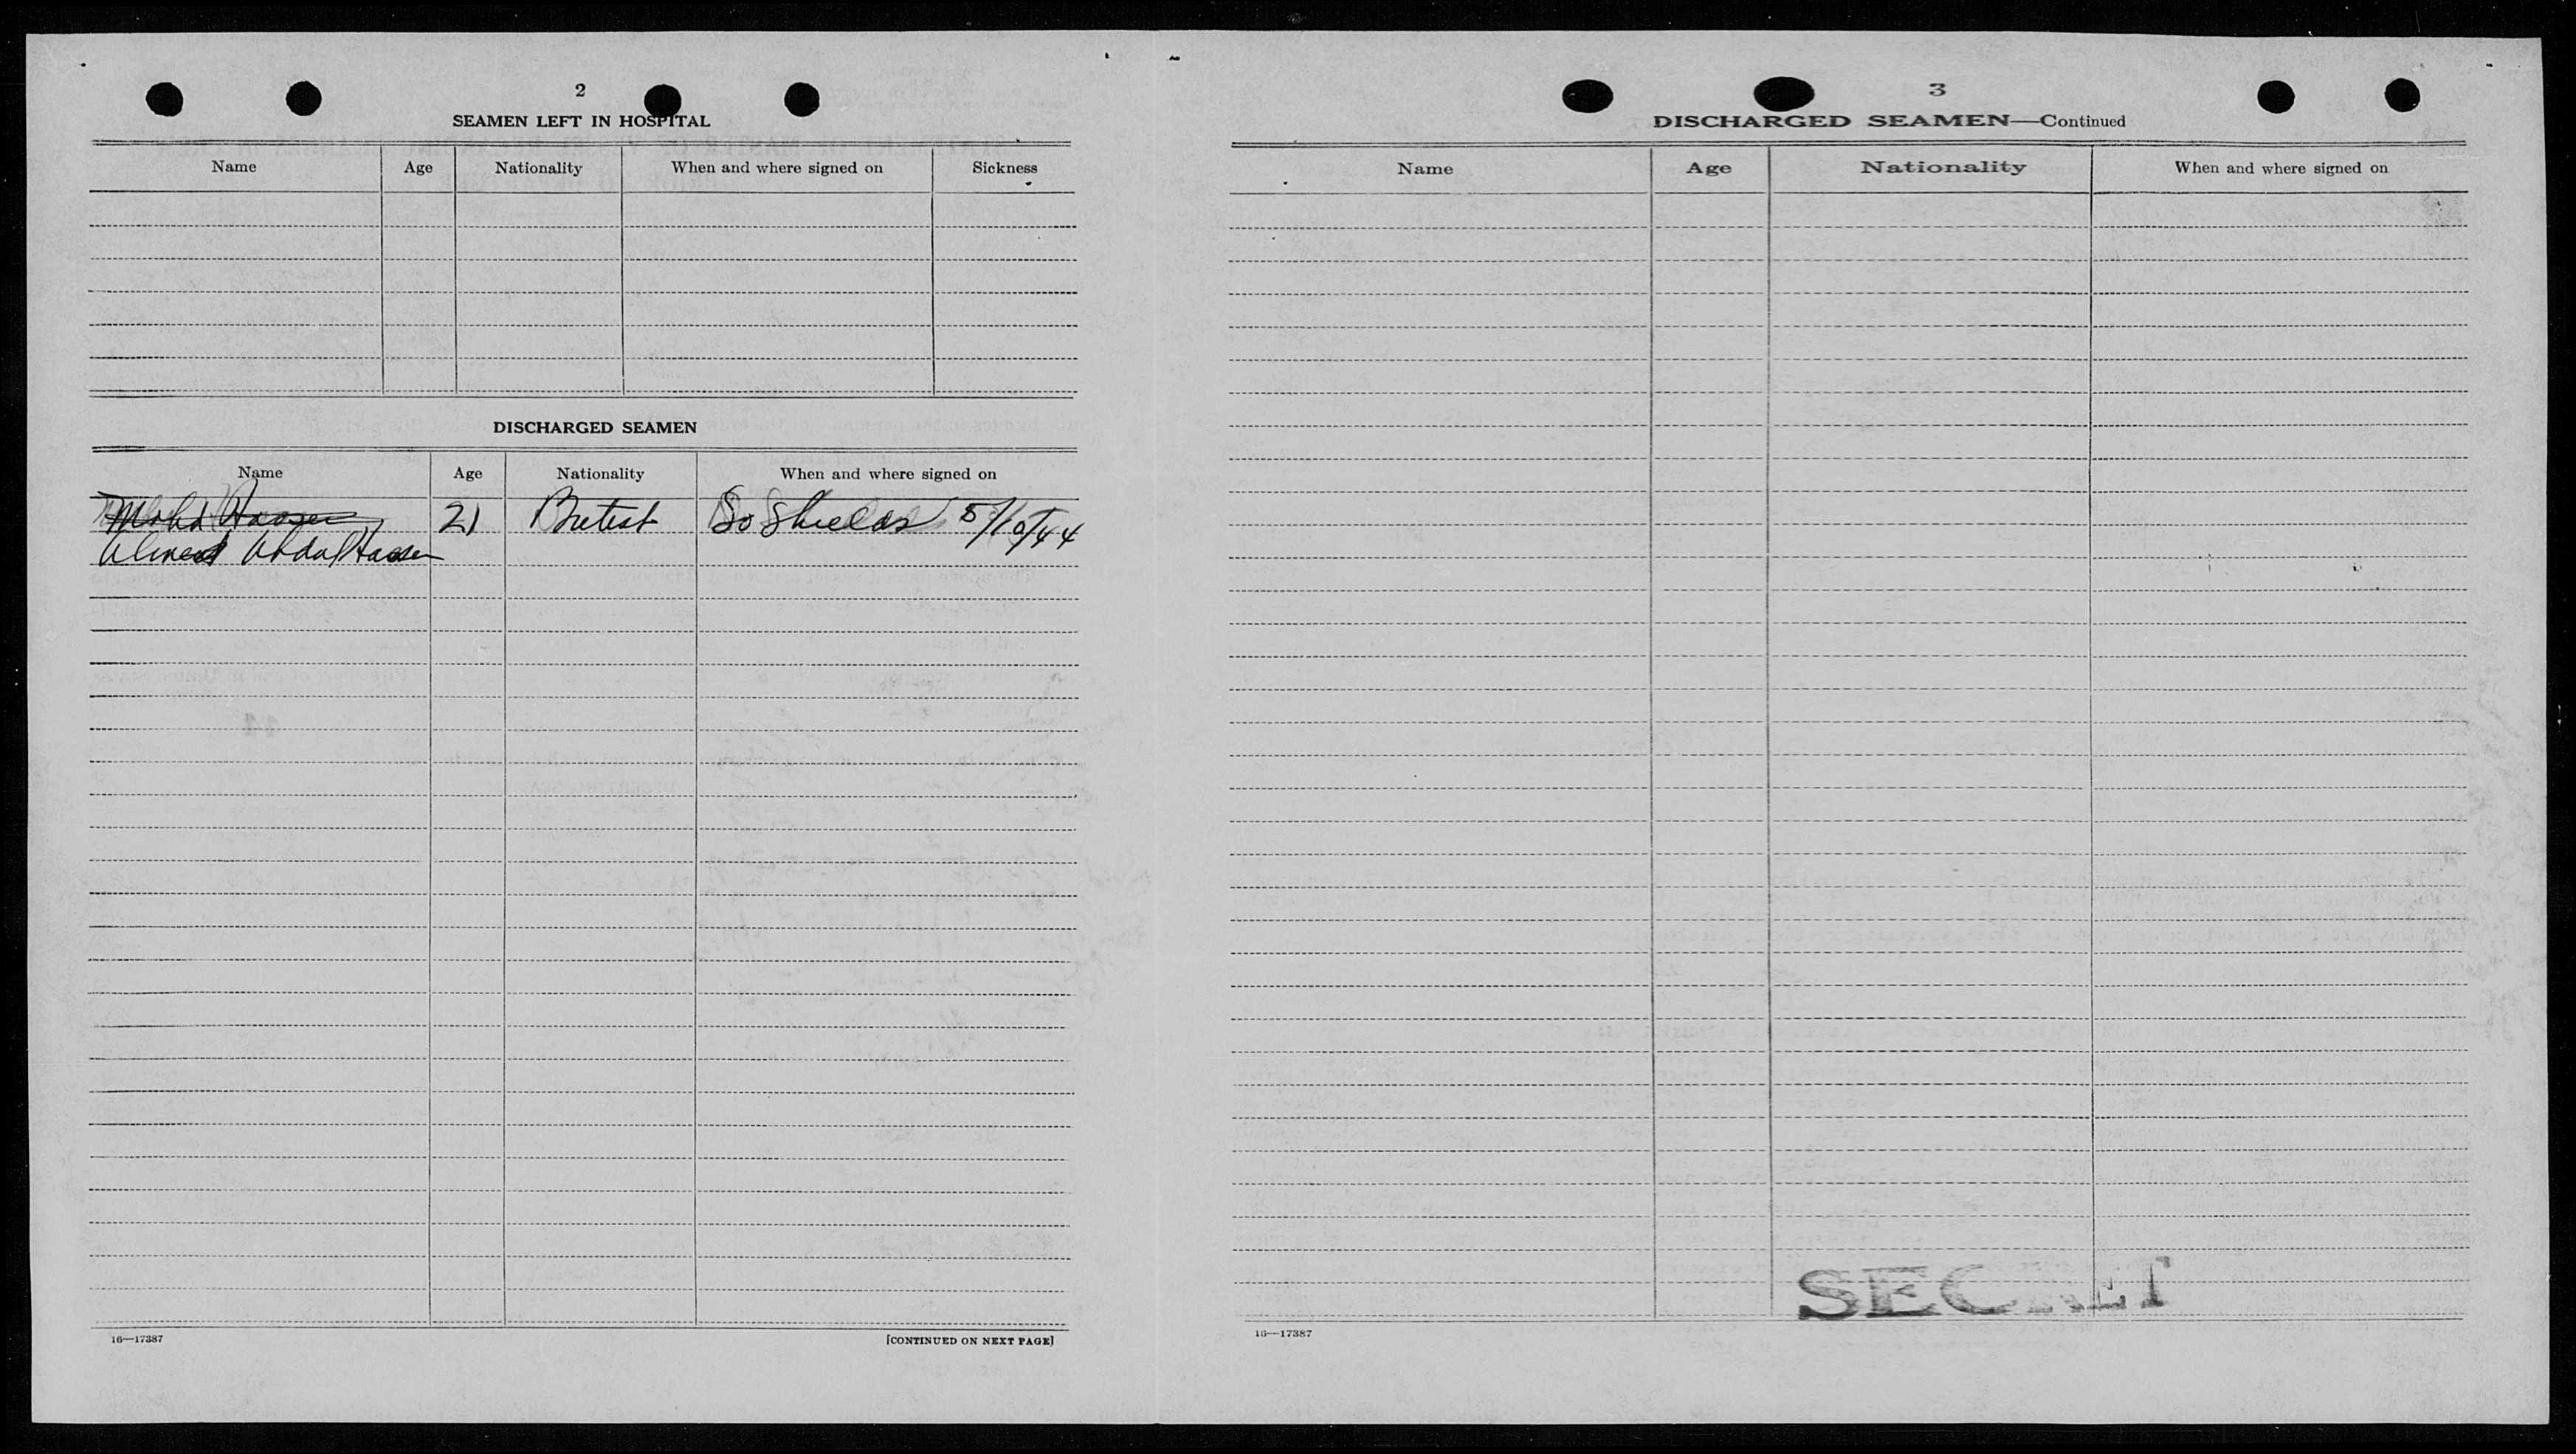 2
SEAMEN LEFT IN HOSPITAL
Name Age Nationality When and where signed on Sickness
DISCHARGED SEAMEN
Name Age Nationality When and where signed on
Mohd Hassen 21 British So Shields 5/10/44
Ahmed Abdul Hassen
16—17387 [CONTINUED ON NEXT PAGE]
3
DISCHARGED SEAMEN—Continued
Name Age Nationality When and where signed on
SECRET
16—17387